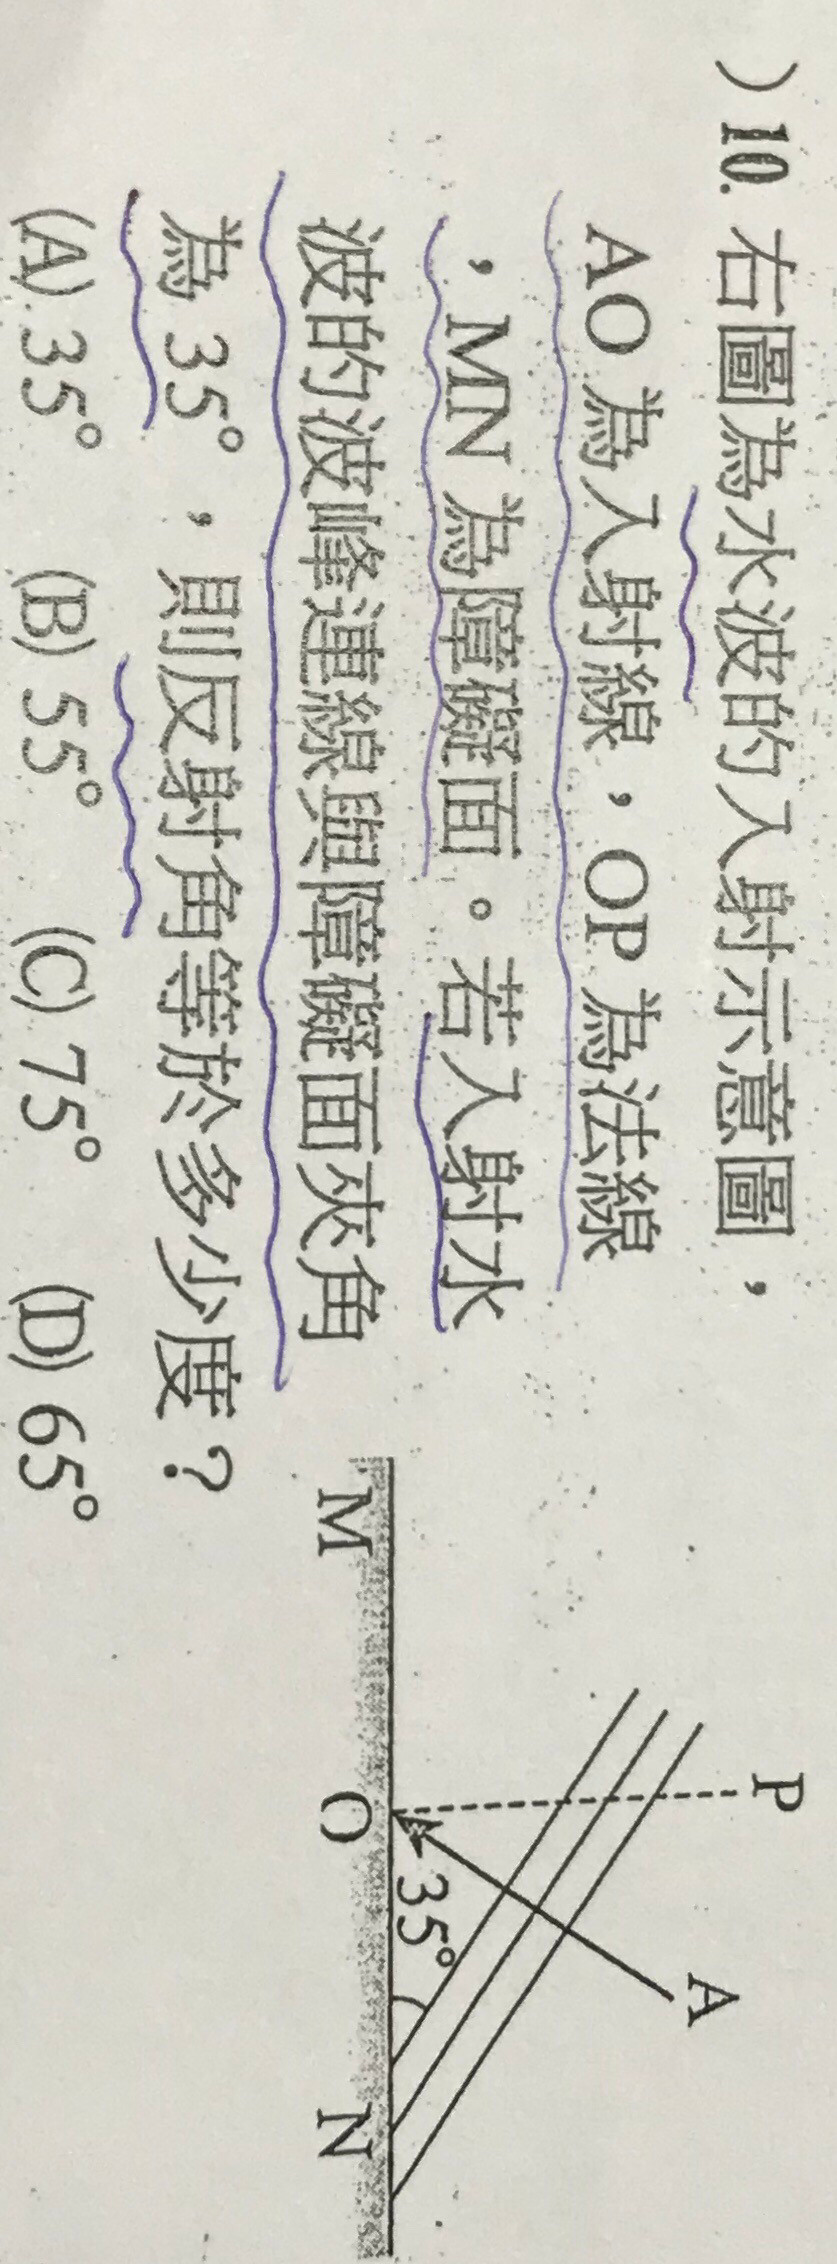 ) 10. 右圖為水波的入射示意圖，
AO 為入射線，OP 為法線
，MN 為障礙面。若入射水
波的波峰連線與障礙面夾角
為 35°，則反射角等於多少度？
(A) 35° (B) 55° (C) 75° (D) 65°
P
A
35°
M O N